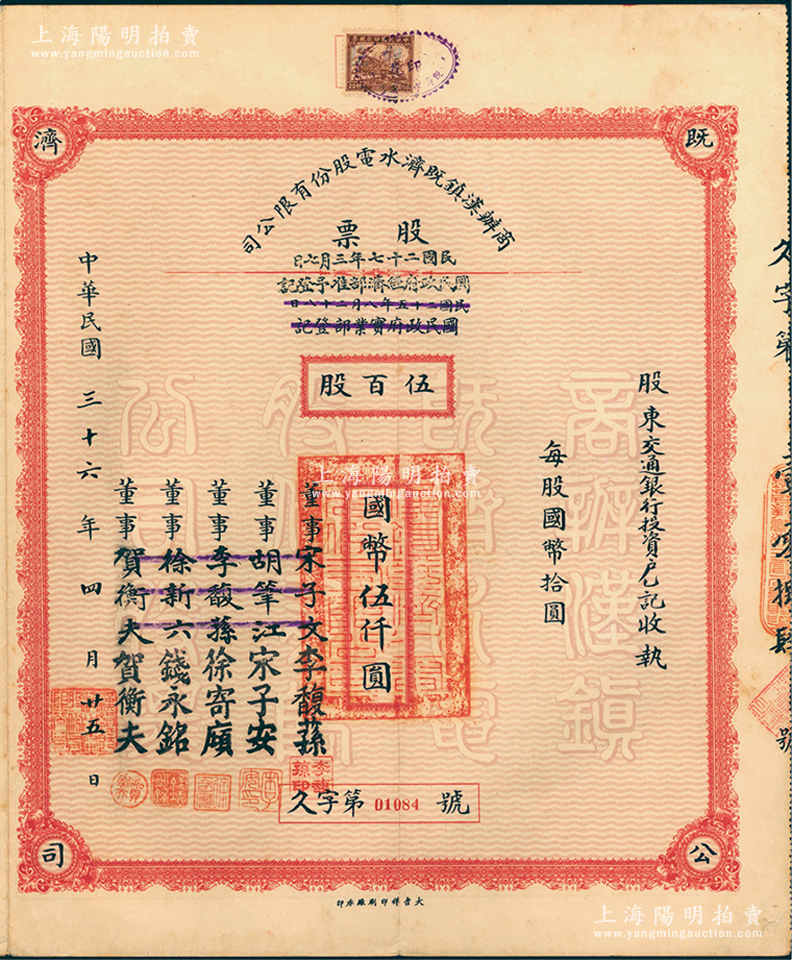 上海陽明拍賣
www.yangmingauction.com
既
濟
公
司
商辦漢鎮既濟水電股份有限公司
股票
民國二十七年三月七日
國民政府經濟部准予登記
民國二十五年八月二十八日
國民政府實業部登記
伍百股
股東交通銀行投資戶記收執
每股國幣拾圓
國幣伍仟圓
上海陽明拍賣
www.yangmingauction.com
董事宋子文李馥蓀
董事胡筆江宋子安
董事李馥蓀徐寄廎
董事徐新六錢永銘
董事賀衡夫賀衡夫
中華民國三十六年四月廿五日
久字第01084號
李馥蓀印
商辦漢鎮
久字第
號
大吉祥印刷廠承印
上海陽明拍賣
www.yangmingauction.com